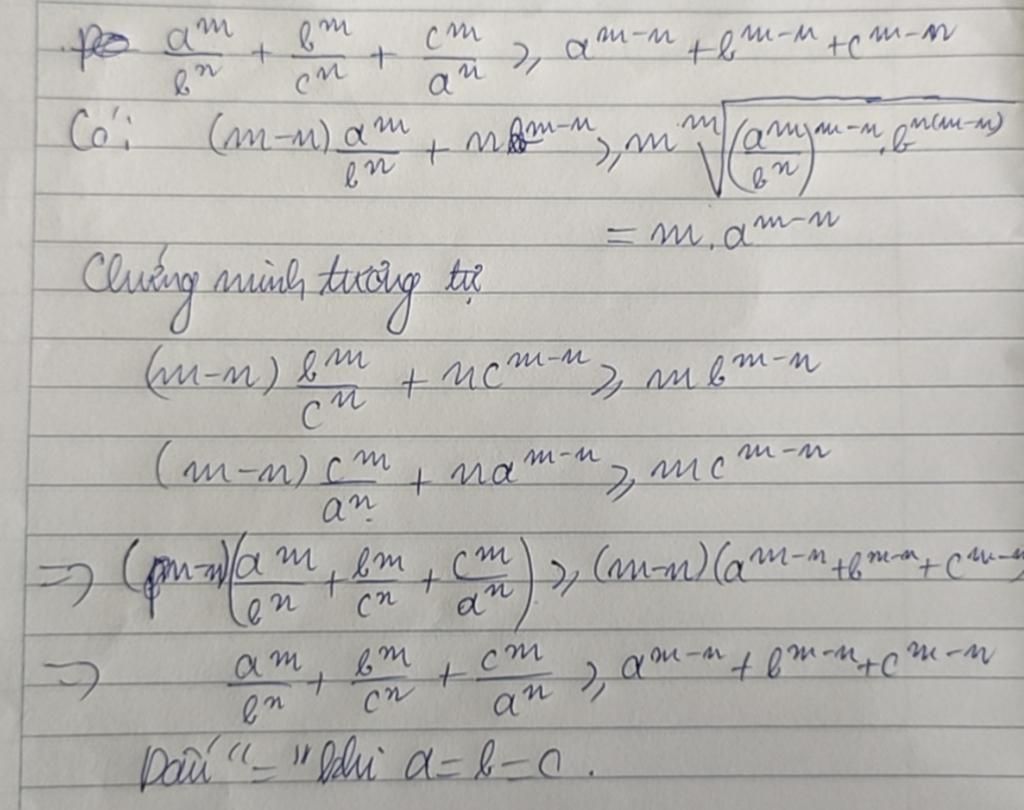 a^m/b^n + b^m/c^n + c^m/a^n ≥ a^{m-n} + b^{m-n} + c^{m-n}
Có: (m-n) a^m/b^n + n b^{m-n} ≥ m \sqrt[m]{(a^m/b^n)^{m-n} . b^{n(m-n)}}
= m . a^{m-n}
Chứng minh tương tự
(m-n) b^m/c^n + n c^{m-n} ≥ m b^{m-n}
(m-n) c^m/a^n + n a^{m-n} ≥ m c^{m-n}
⇒ (m-n)(a^m/b^n + b^m/c^n + c^m/a^n) ≥ (m-n)(a^{m-n} + b^{m-n} + c^{m-n}
⇒ a^m/b^n + b^m/c^n + c^m/a^n ≥ a^{m-n} + b^{m-n} + c^{m-n}
Dấu "=" khi a = b = c .